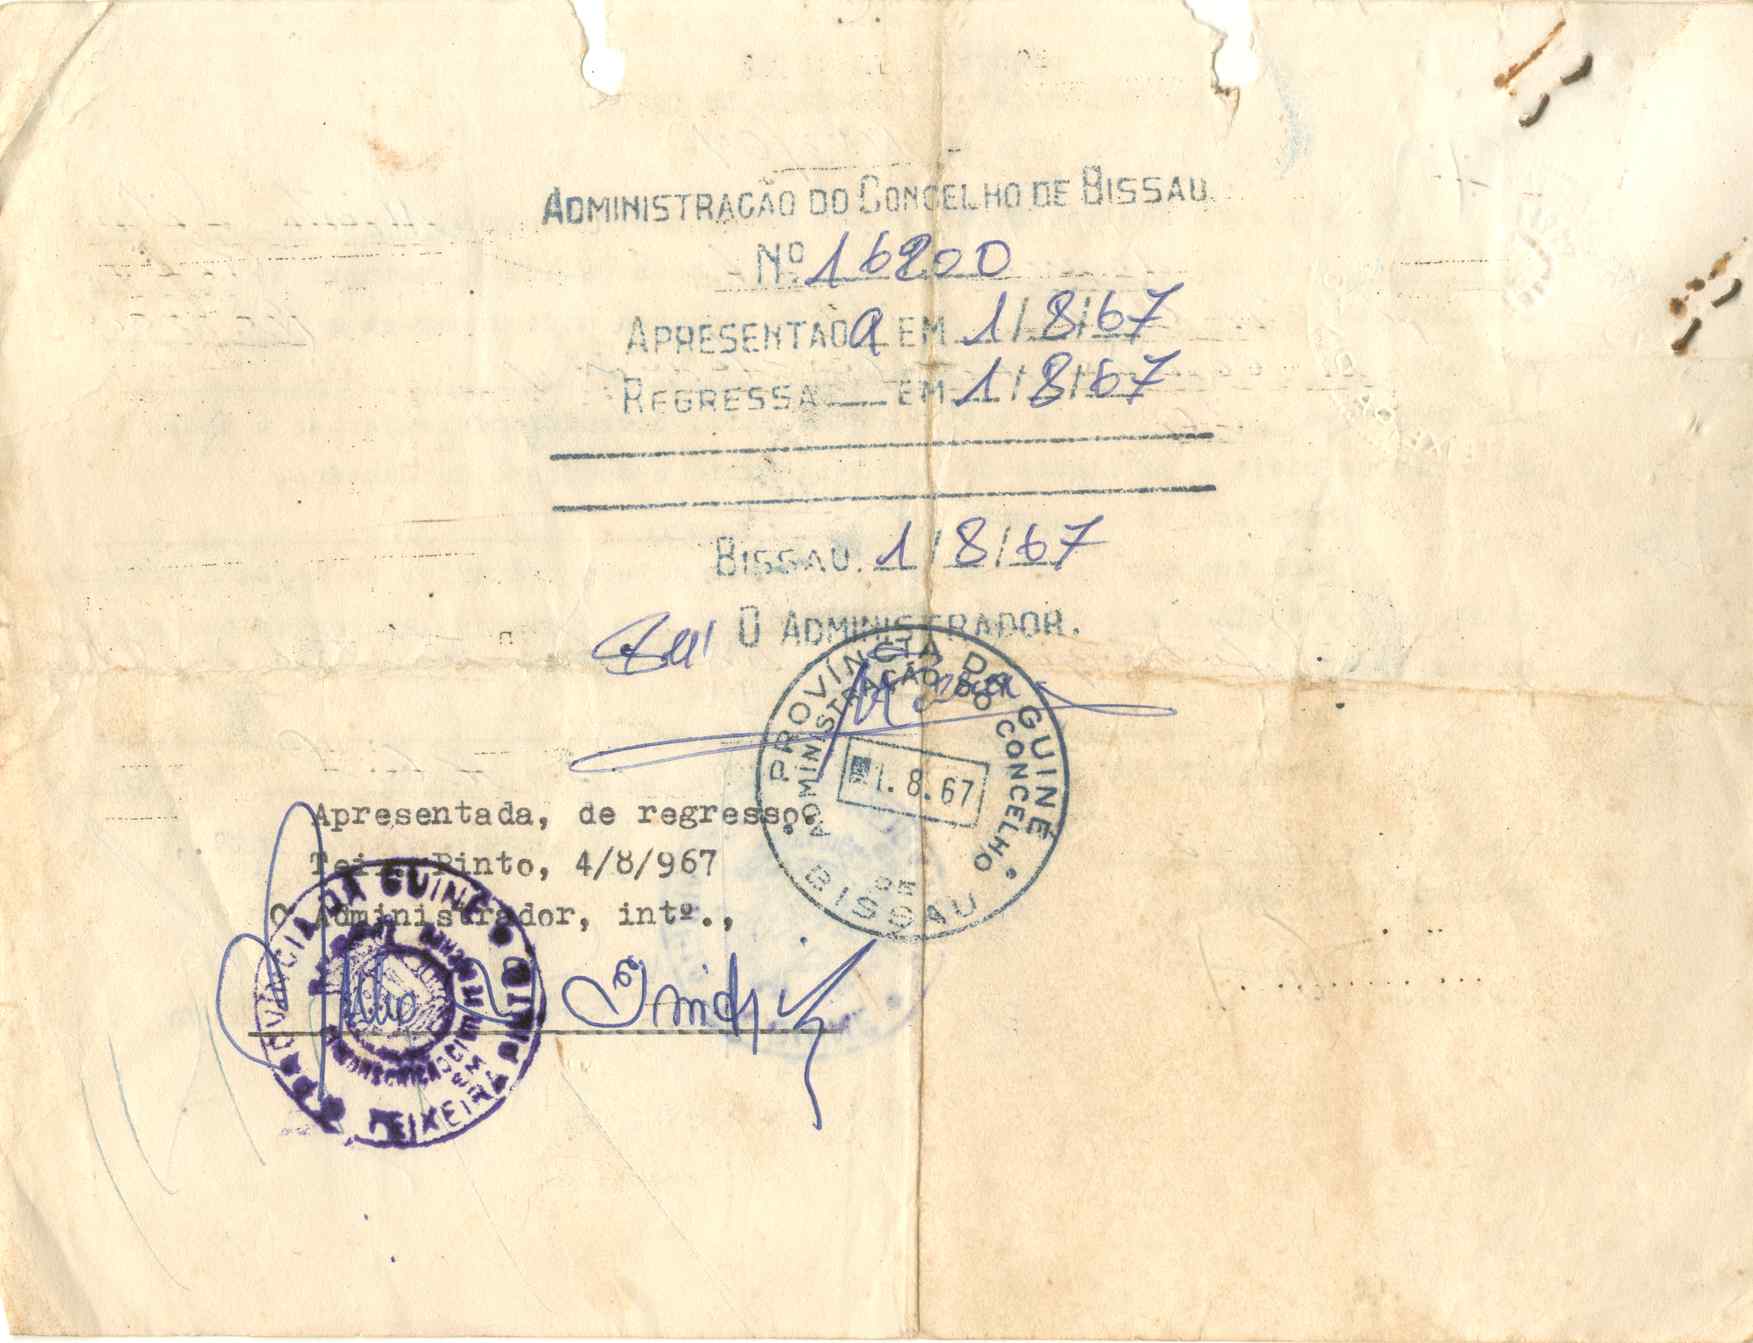 ADMINISTRAÇÃO DO CONCELHO DE BISSAU
Nº 16200
APRESENTADO a EM 1/8/67
REGRESSA EM 1/8/67
BISSAU. 1/8/67
O ADMINISTRADOR.
PROVÍNCIA DA GUINÉ
ADMINISTRAÇÃO DO CONCELHO
1.8.67
DE
BISSAU
Apresentada, de regresso.
Teixª Pinto, 4/8/967
O Administrador, intº.,
PROVÍNCIA DA GUINÉ
EM
TEIXEIRA PINTO